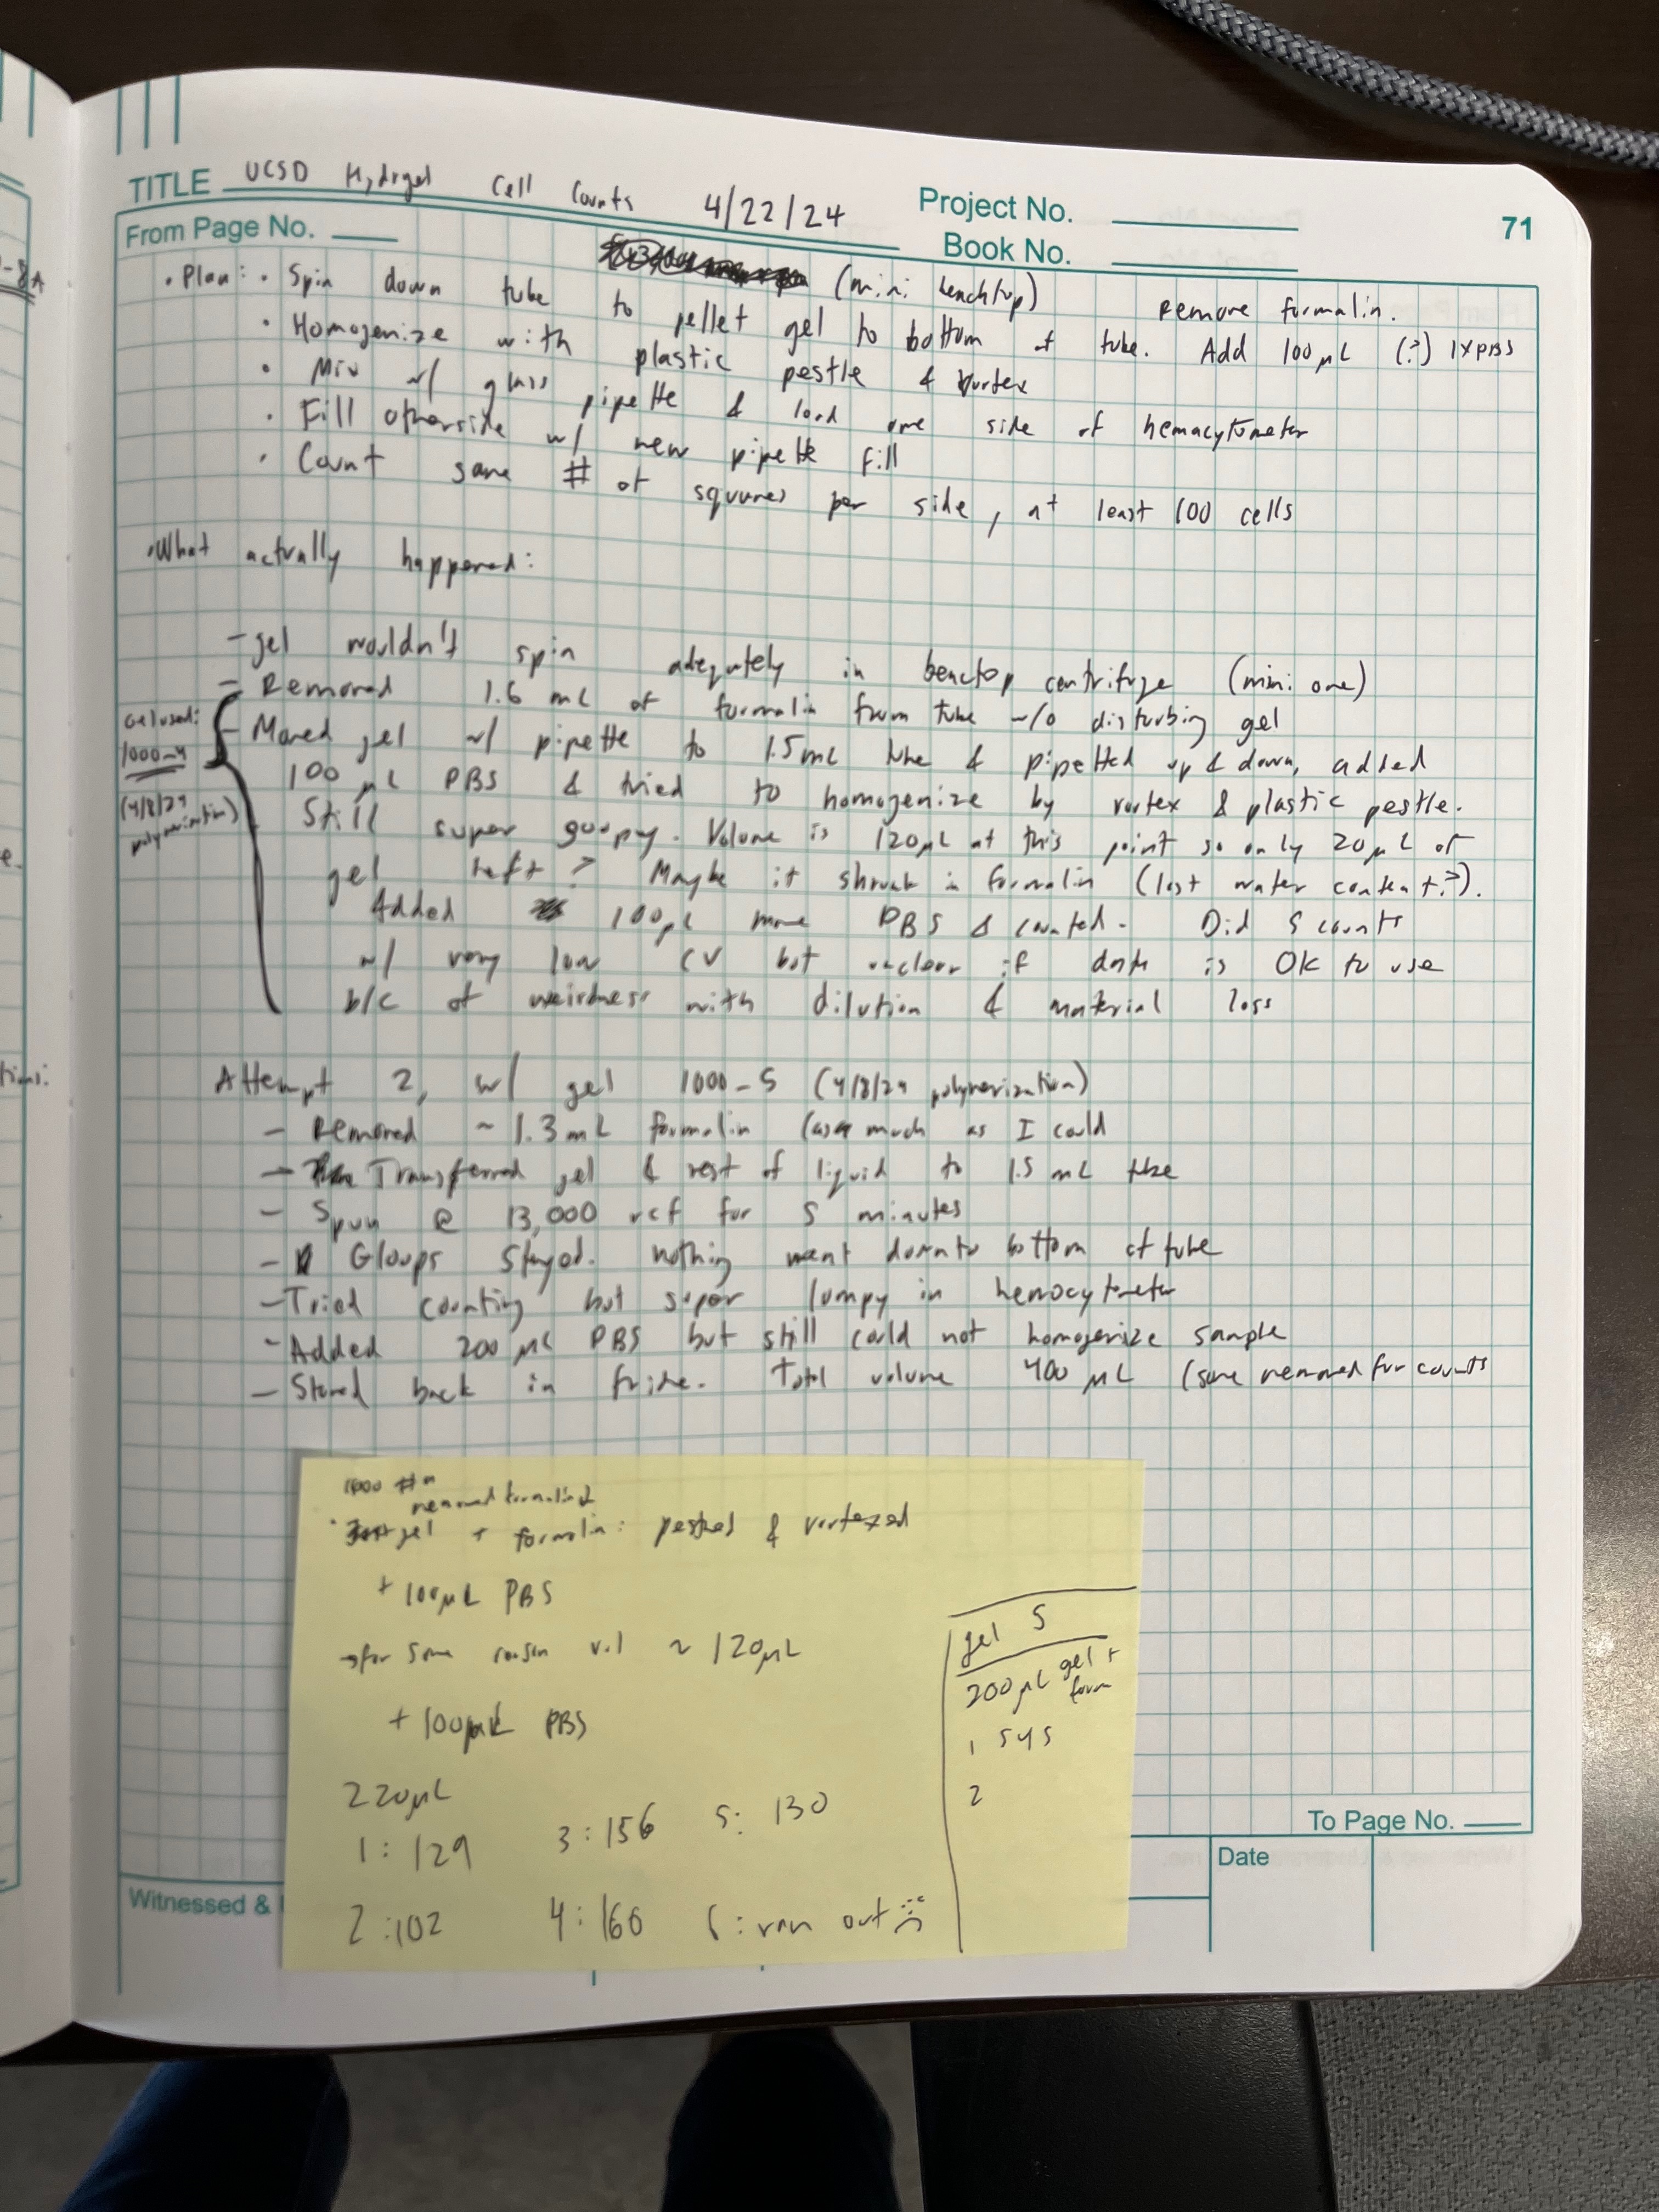 TITLE UCSD Hydrgel Cell Counts 4/22/24
Project No.
71
From Page No.
Book No.
• Plan: • Spin down tube (mini benchtop) to pellet gel to bottom of tube. Remove formalin. Add 100 µL (?) 1XPBS
• Homogenize with plastic pestle & vortex
• Mix w/ glass pipette & load one side of hemacytometer
• Fill otherside w/ new pipette fill
• Count same # of squares per side, at least 100 cells
• What actually happened:
- gel wouldn't spin adequately in benctop centrifuge (mini one)
- Removed 1.6 mL of formalin from tube w/o disturbing gel
Gel used:
1000-4
(4/8/24
polymerization)
- Moved gel w/ pipette to 1.5mL tube & pipetted up & down, added
100 µL PBS & tried to homogenize by vortex & plastic pestle.
Still super goopy. Volume is 120µL at this point so only 20µL of
gel left? Maybe it shrunk in formalin (lost water content?).
Added 100µL more PBS & counted. Did 5 counts
w/ very low CV but unclear if data is OK to use
b/c of weirdness with dilution & material loss
Attempt 2, w/ gel 1000-5 (4/8/24 polymerization)
- Removed ~1.3 mL formalin (as much as I could
- Transferred gel & rest of liquid to 1.5 mL tube
- Spun @ 13,000 rcf for 5 minutes
- Gloops stayed. nothing went down to bottom of tube
- Tried counting but super lumpy in hemocytometer
- Added 200 µL PBS but still could not homogenize sample
- Stored back in fridge. Total volume 400 µL (some removed for counts
1000 #4
removed formalin
• gel + formalin: pestled & vortexed
+ 100µL PBS
→ for some reason vol ~ 120µL
+ 100µL PBS
220µL
1: 129
3: 156
5: 130
2: 102
4: 160
6: ran out
gel 5
200µL gel + form
1 545
2
To Page No.
Date
Witnessed &